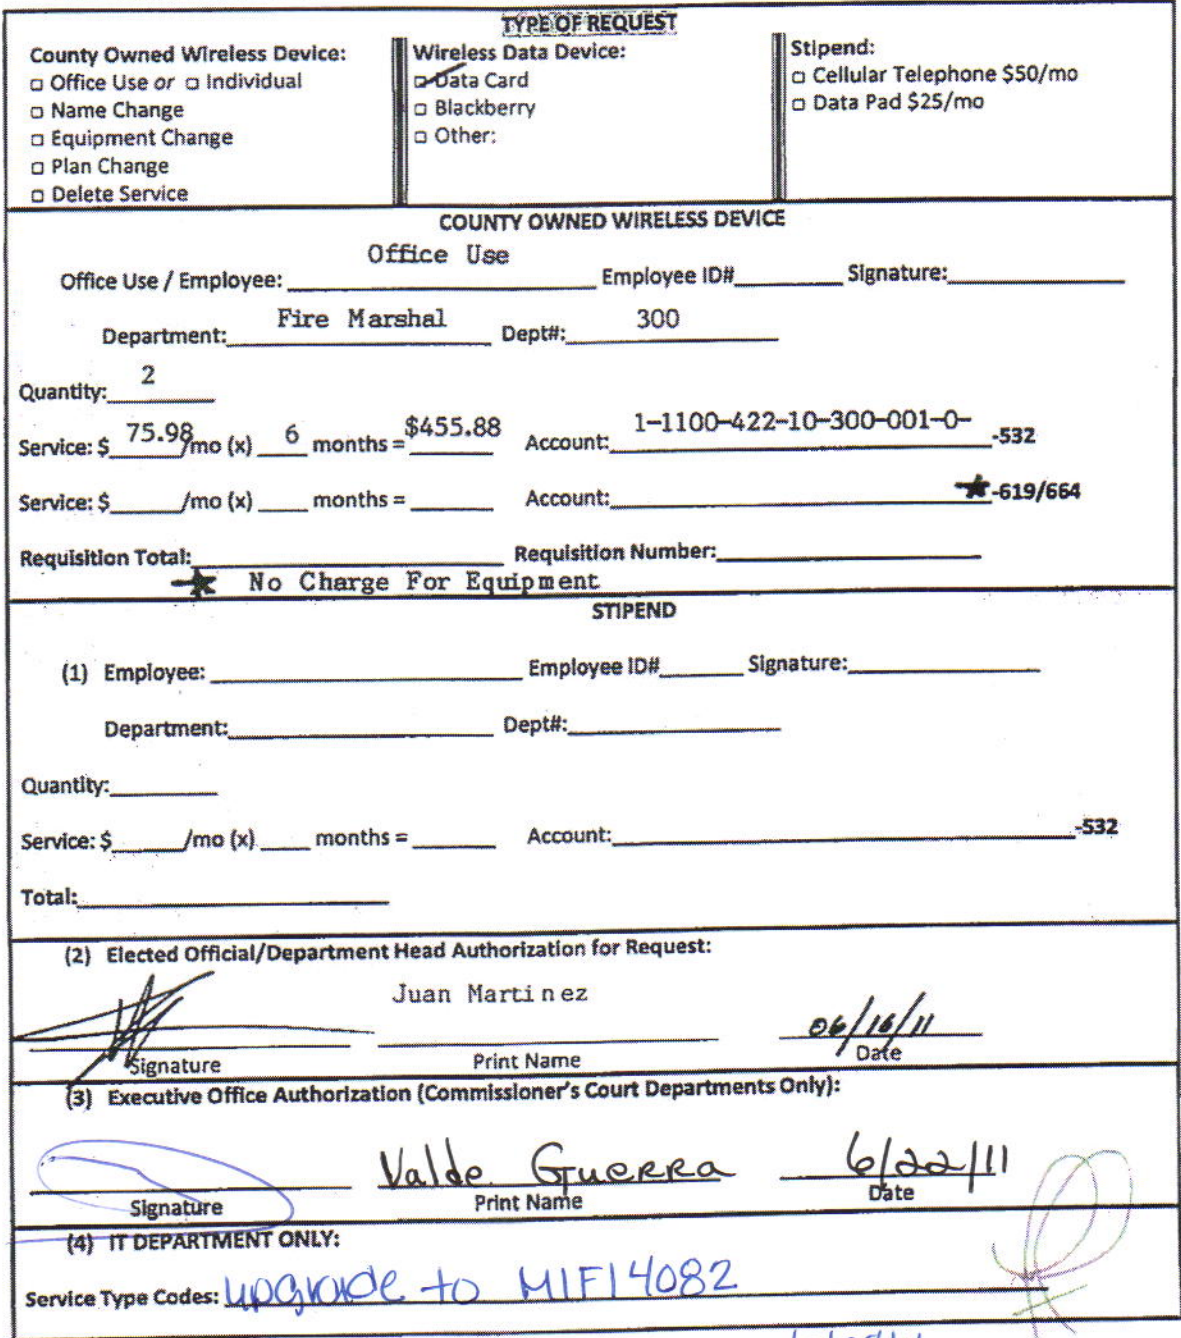 TYPE OF REQUEST
County Owned Wireless Device:
□ Office Use or □ Individual
□ Name Change
□ Equipment Change
□ Plan Change
□ Delete Service
Wireless Data Device:
□ Data Card
□ Blackberry
□ Other:
Stipend:
□ Cellular Telephone $50/mo
□ Data Pad $25/mo
COUNTY OWNED WIRELESS DEVICE
Office Use / Employee: Office Use Employee ID# Signature:
Department: Fire Marshal Dept#: 300
Quantity: 2
Service: $ 75.98/mo (x) 6 months = $455.88 Account: 1-1100-422-10-300-001-0- -532
Service: $ /mo (x) months = Account: ★-619/664
Requisition Total: Requisition Number:
★ No Charge For Equipment
STIPEND
(1) Employee: Employee ID# Signature:
Department: Dept#:
Quantity:
Service: $ /mo (x) months = Account: -532
Total:
(2) Elected Official/Department Head Authorization for Request:
Juan Martinez 06/16/11
Signature Print Name Date
(3) Executive Office Authorization (Commissioner's Court Departments Only):
Valde Guerra 6/22/11
Signature Print Name Date
(4) IT DEPARTMENT ONLY:
Service Type Codes: upgrade to MIFI 4082